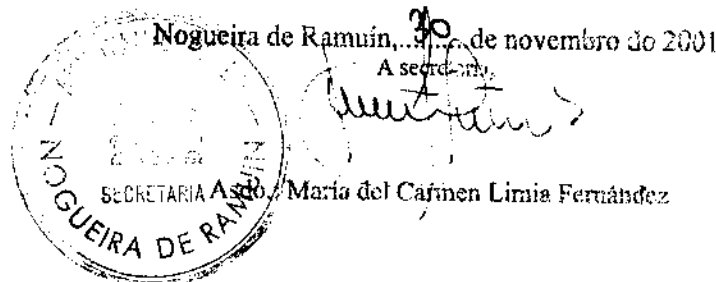 Nogueira de Ramuín, 30 de novembro do 2001
A secretaria,
SECRETARIA
Asdo.: María del Carmen Limia Fernández
NOGUEIRA DE RAMUIN